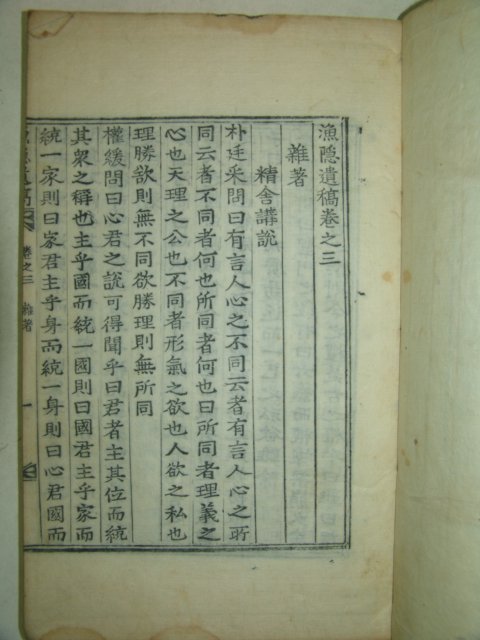 漁隱遺稿卷之三
雜著
精舍講說
朴廷采問曰有言人心之不同云者有言人心之所
同云者不同者何也所同者何也曰所同者理義之
心也天理之公也不同者形氣之欲也人欲之私也
理勝欲則無不同欲勝理則無所同
權緩問曰心君之說可得聞乎曰君者主其位而統
其衆之稱也主乎國而統一國則曰國君主乎家而
統一家則曰家君主乎身而統一身則曰心君國而
卷之三 雜著 一